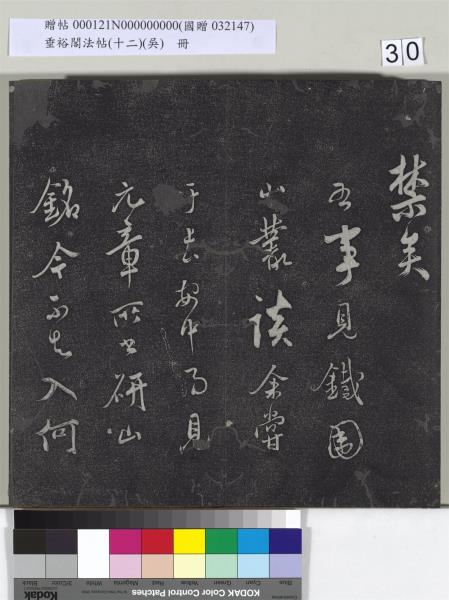 贈帖 000121N000000000(國贈 032147)
垂裕閣法帖(十二)(吳)　冊
30
禁矣
右事見鐵圍
山叢談余嘗
于長安中得見
元章所書研山
銘今不知入何
Blue
Cyan
Green
Yellow
Red
Magenta
White
3/Color
Black
Kodak
KODAK Color Control Patches